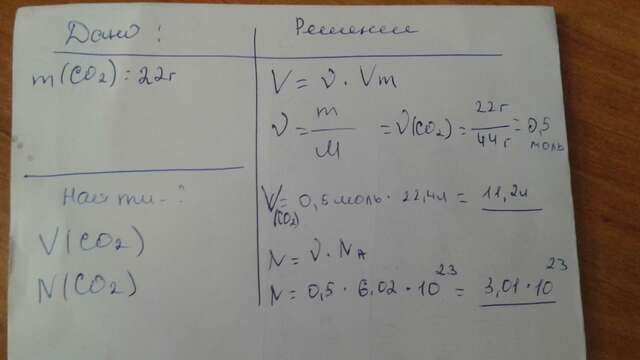 Дано:
m(CO2) = 22г
Найти-?
V(CO2)
N(CO2)
Решение
V = ν · Vm
ν = m/M = ν(CO2) = 22г/44г = 0,5 моль
V(CO2) = 0,5 моль · 22,4л = 11,2л
N = ν · NA
N = 0,5 · 6,02 · 10^23 = 3,01 · 10^23